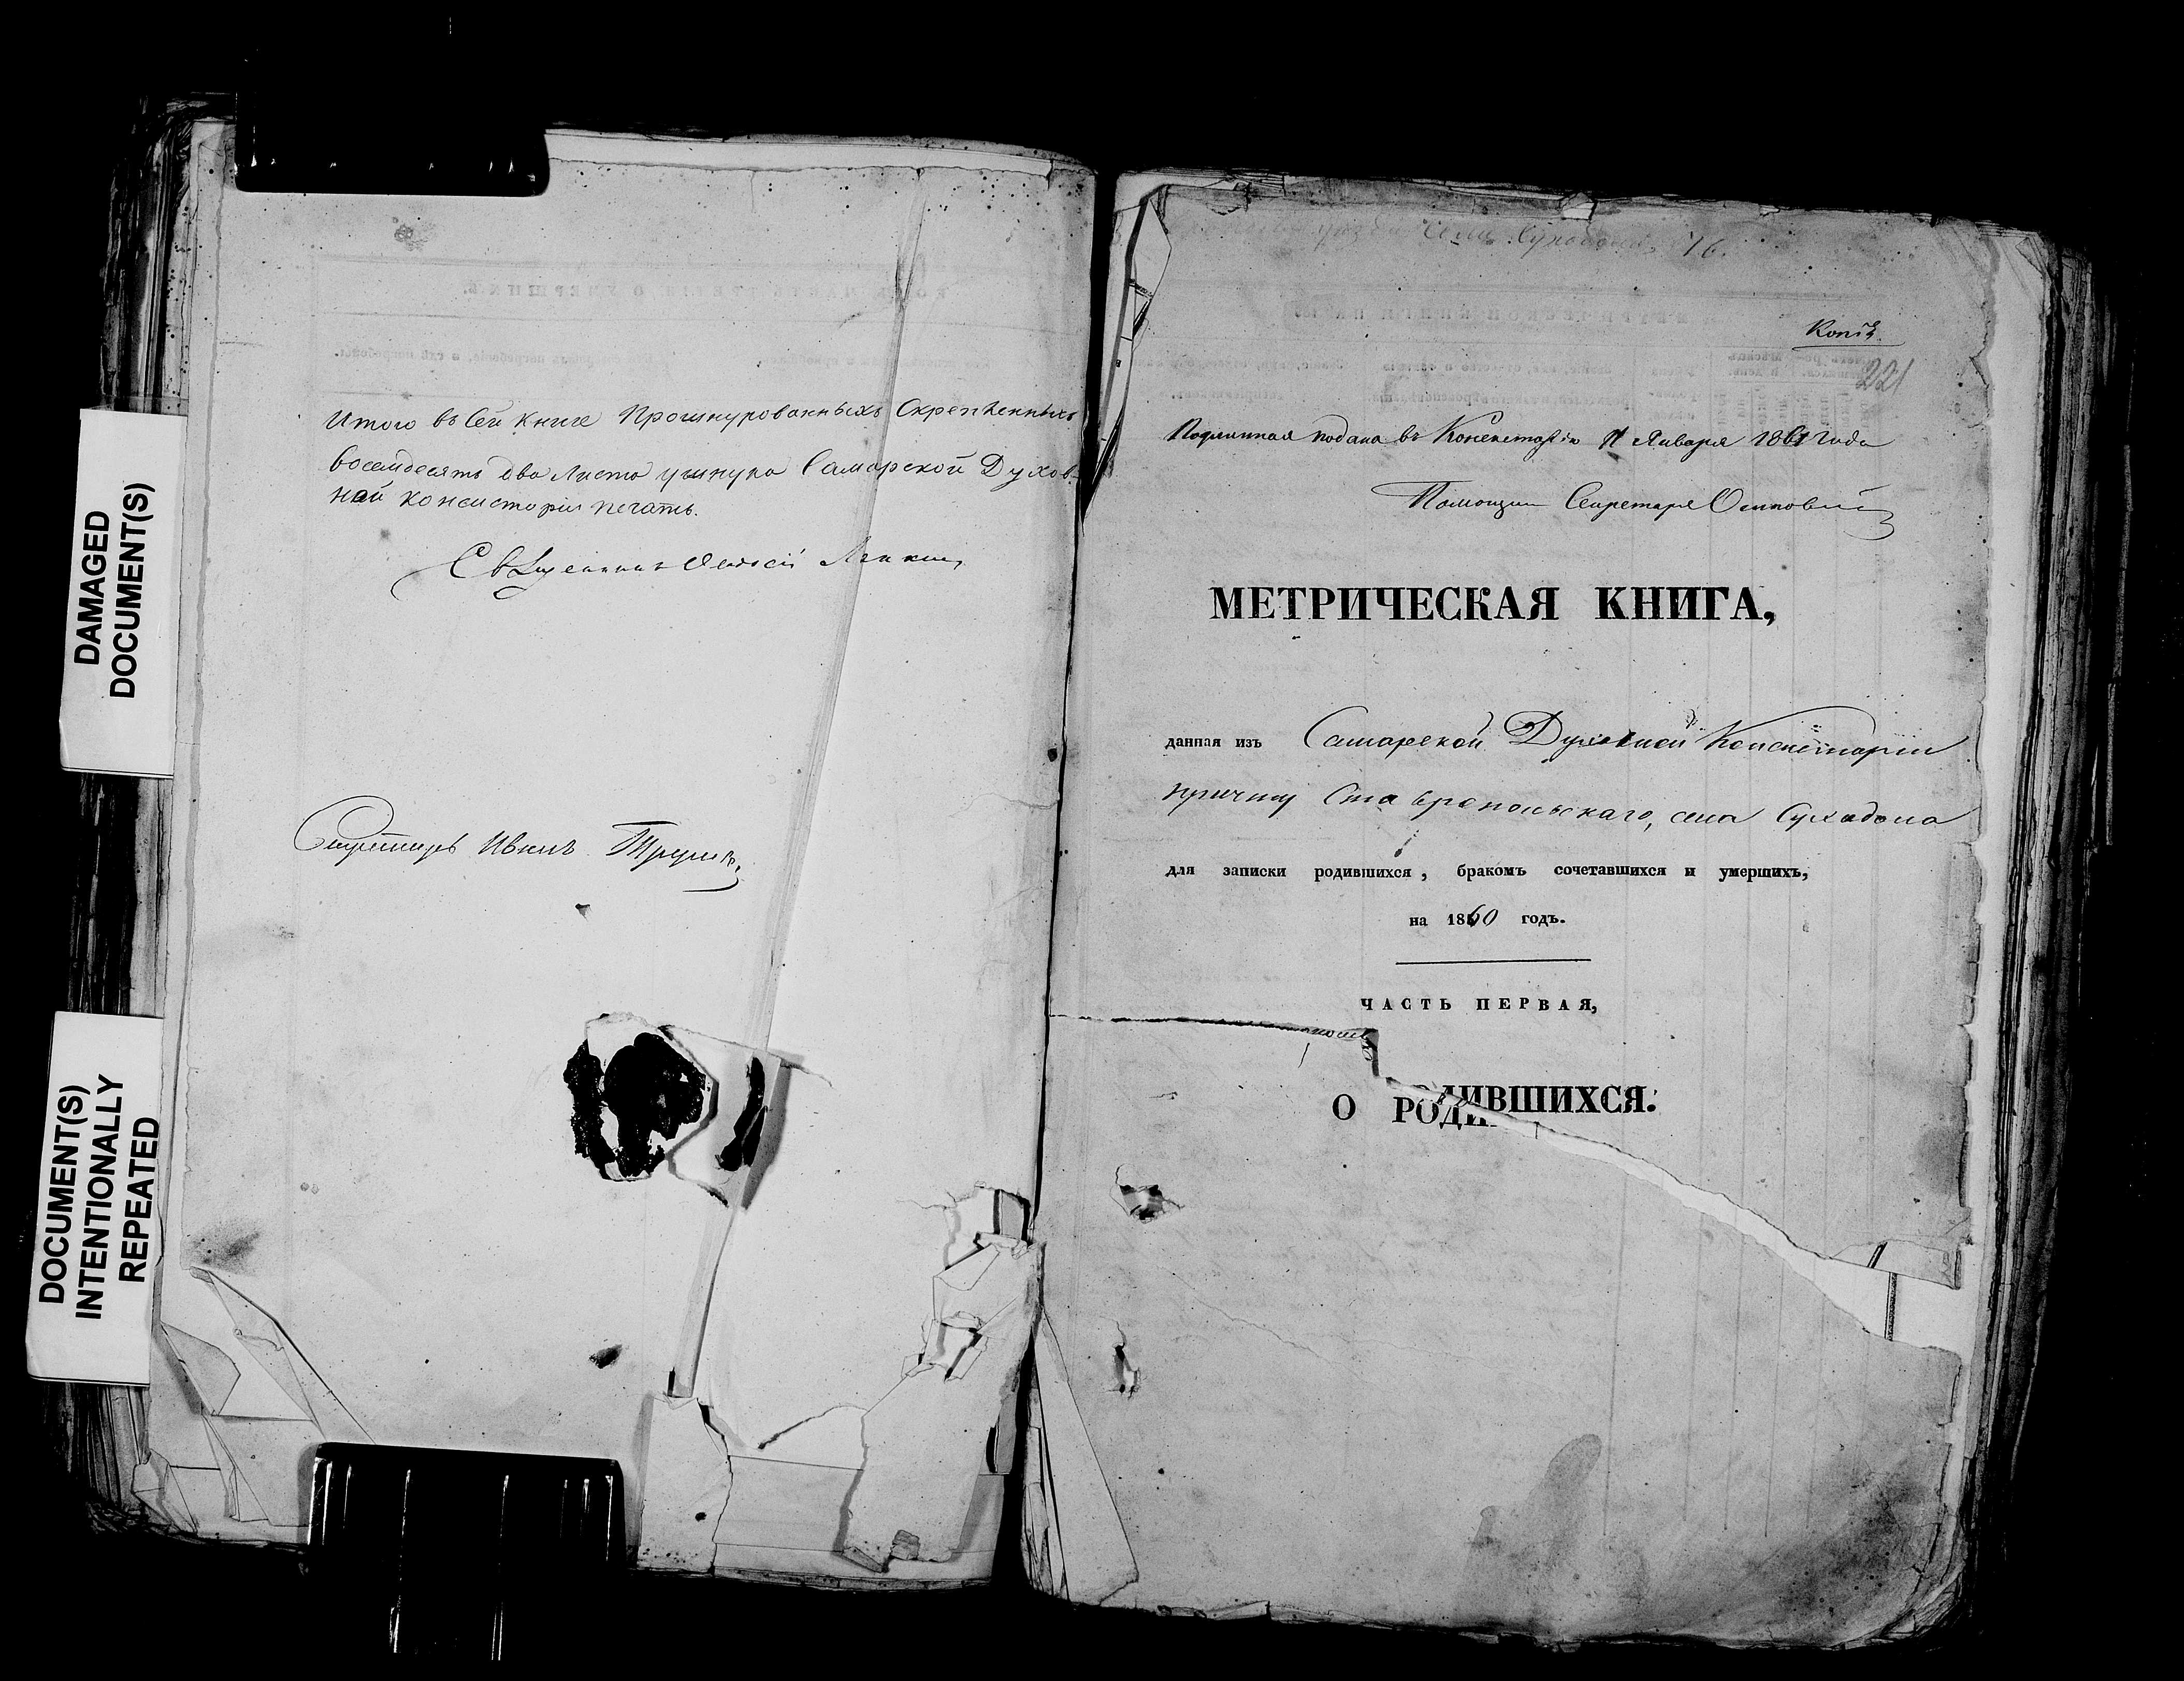 DAMAGED
DOCUMENT(S)
DOCUMENT(S)
INTENTIONALLY
REPEATED
Итого въ сей книге прошнурованныхъ скрепленныхъ
восемдесятъ два листа у шнура Самарской Духов-
ной консисторіи печать.
Священникъ Алексей
Секретарь Иванъ
села 16.
Копія.
221
Подлинная подана въ Консисторію 11 Января 1861 года
Помощникъ Секретаря Осиповъ
МЕТРИЧЕСКАЯ КНИГА,
данная изъ Самарской Духовной Консисторіи
причту Ставропольскаго, села Суходола
для записки родившихся, бракомъ сочетавшихся и умершихъ,
на 1860 годъ.
ЧАСТЬ ПЕРВАЯ,
О РОДИВШИХСЯ.